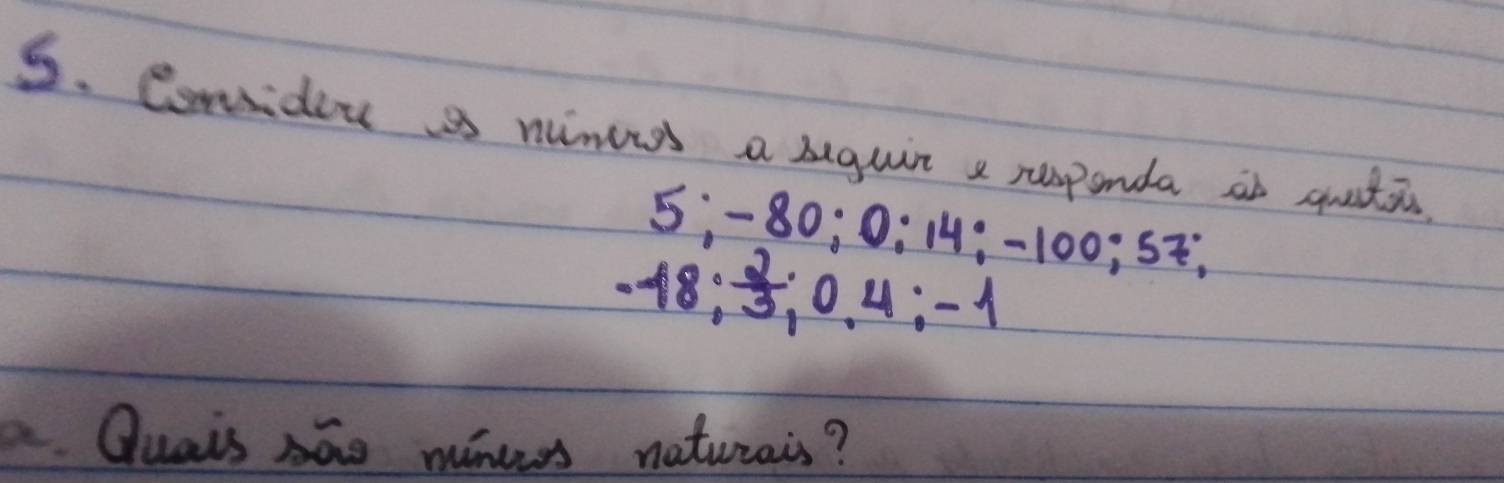 5. Considere os números a seguir e responda às questões.
5; -80; 0; 14; -100; 57;
-18; 2/3; 0.4; -1
a. Quais são números naturais?